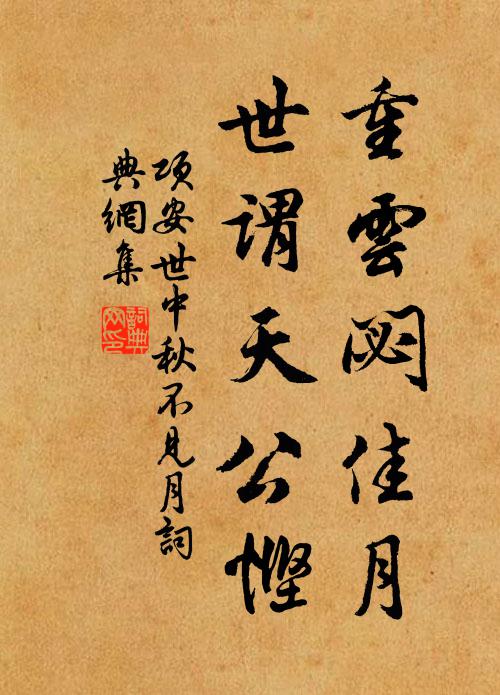 重雲閟佳月
世謂天公慳
項安世中秋不見月詞
典網集
詞典
网印